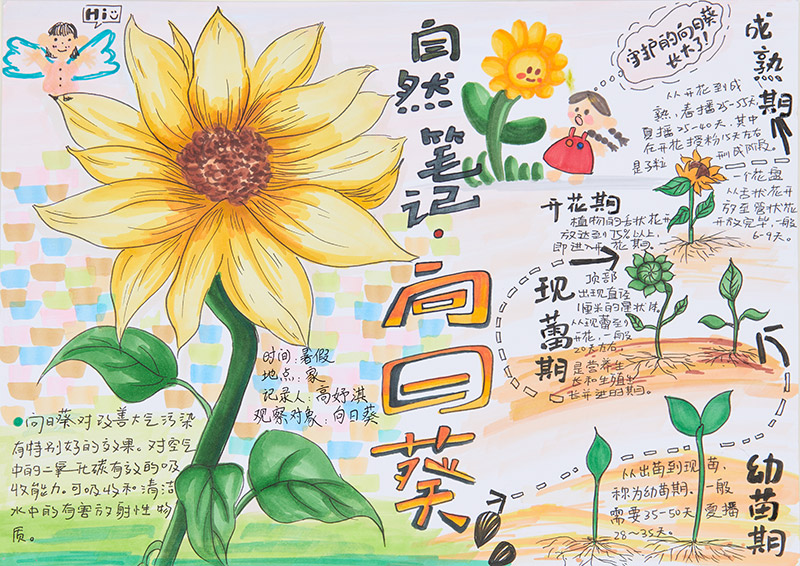 Hi
自然笔记·向日葵
守护的向日葵
长大了!
成熟期
从开花到成
熟,春播25-55天
夏播25-40天,其中
在开花授粉15天左右
是子粒形成阶段。
一个花盘
从舌状花开
放至管状花
开放完毕,一般
6-9天。
开花期
植物的舌状花开
放达到75%以上,
即进入开花期。
现蕾期
顶部
出现直径
1厘米的星状体。
从现蕾至
开花,一般
20天左右。
是营养生
长和生殖生
长并进时期。
幼苗期
从出苗到现苗,
称为幼苗期,一般
需要35-50天 夏播
28~35天。
时间:暑假
地点:家
记录人:高妤淇
观察对象:向日葵
向日葵对改善大气污染
有特别好的效果。对空气
中的二氧化碳有效的吸
收能力。可吸收和清洁
水中的有害放射性物
质。